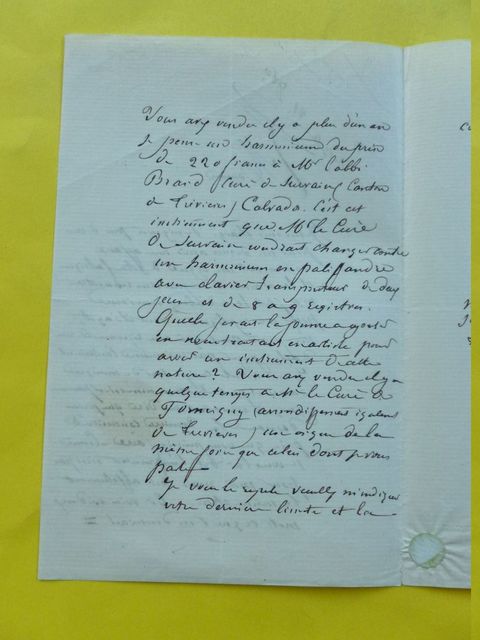 Vous avez vendu il y a plus d'un an
je pense un harmonium du prix
de 220 francs à Mr l'abbé
Braid Curé de Canton
de Calvados. C'est cet
instrument que Mr le Curé
de voudrait changer contre
un harmonium en palissandre
avec clavier transpositeur de deux
jeux et de 8 a 9 registres.
Quelle serait la somme a
en article pour
avoir un instrument de cette
nature? Vous avez vendu il y a
quelque temps a Mr le Curé de
(arrondissement également
de ) un orgue de la
même que celui dont je vous
parle
Je vous le répète veuillez m'indiquer
votre dernière limite et la